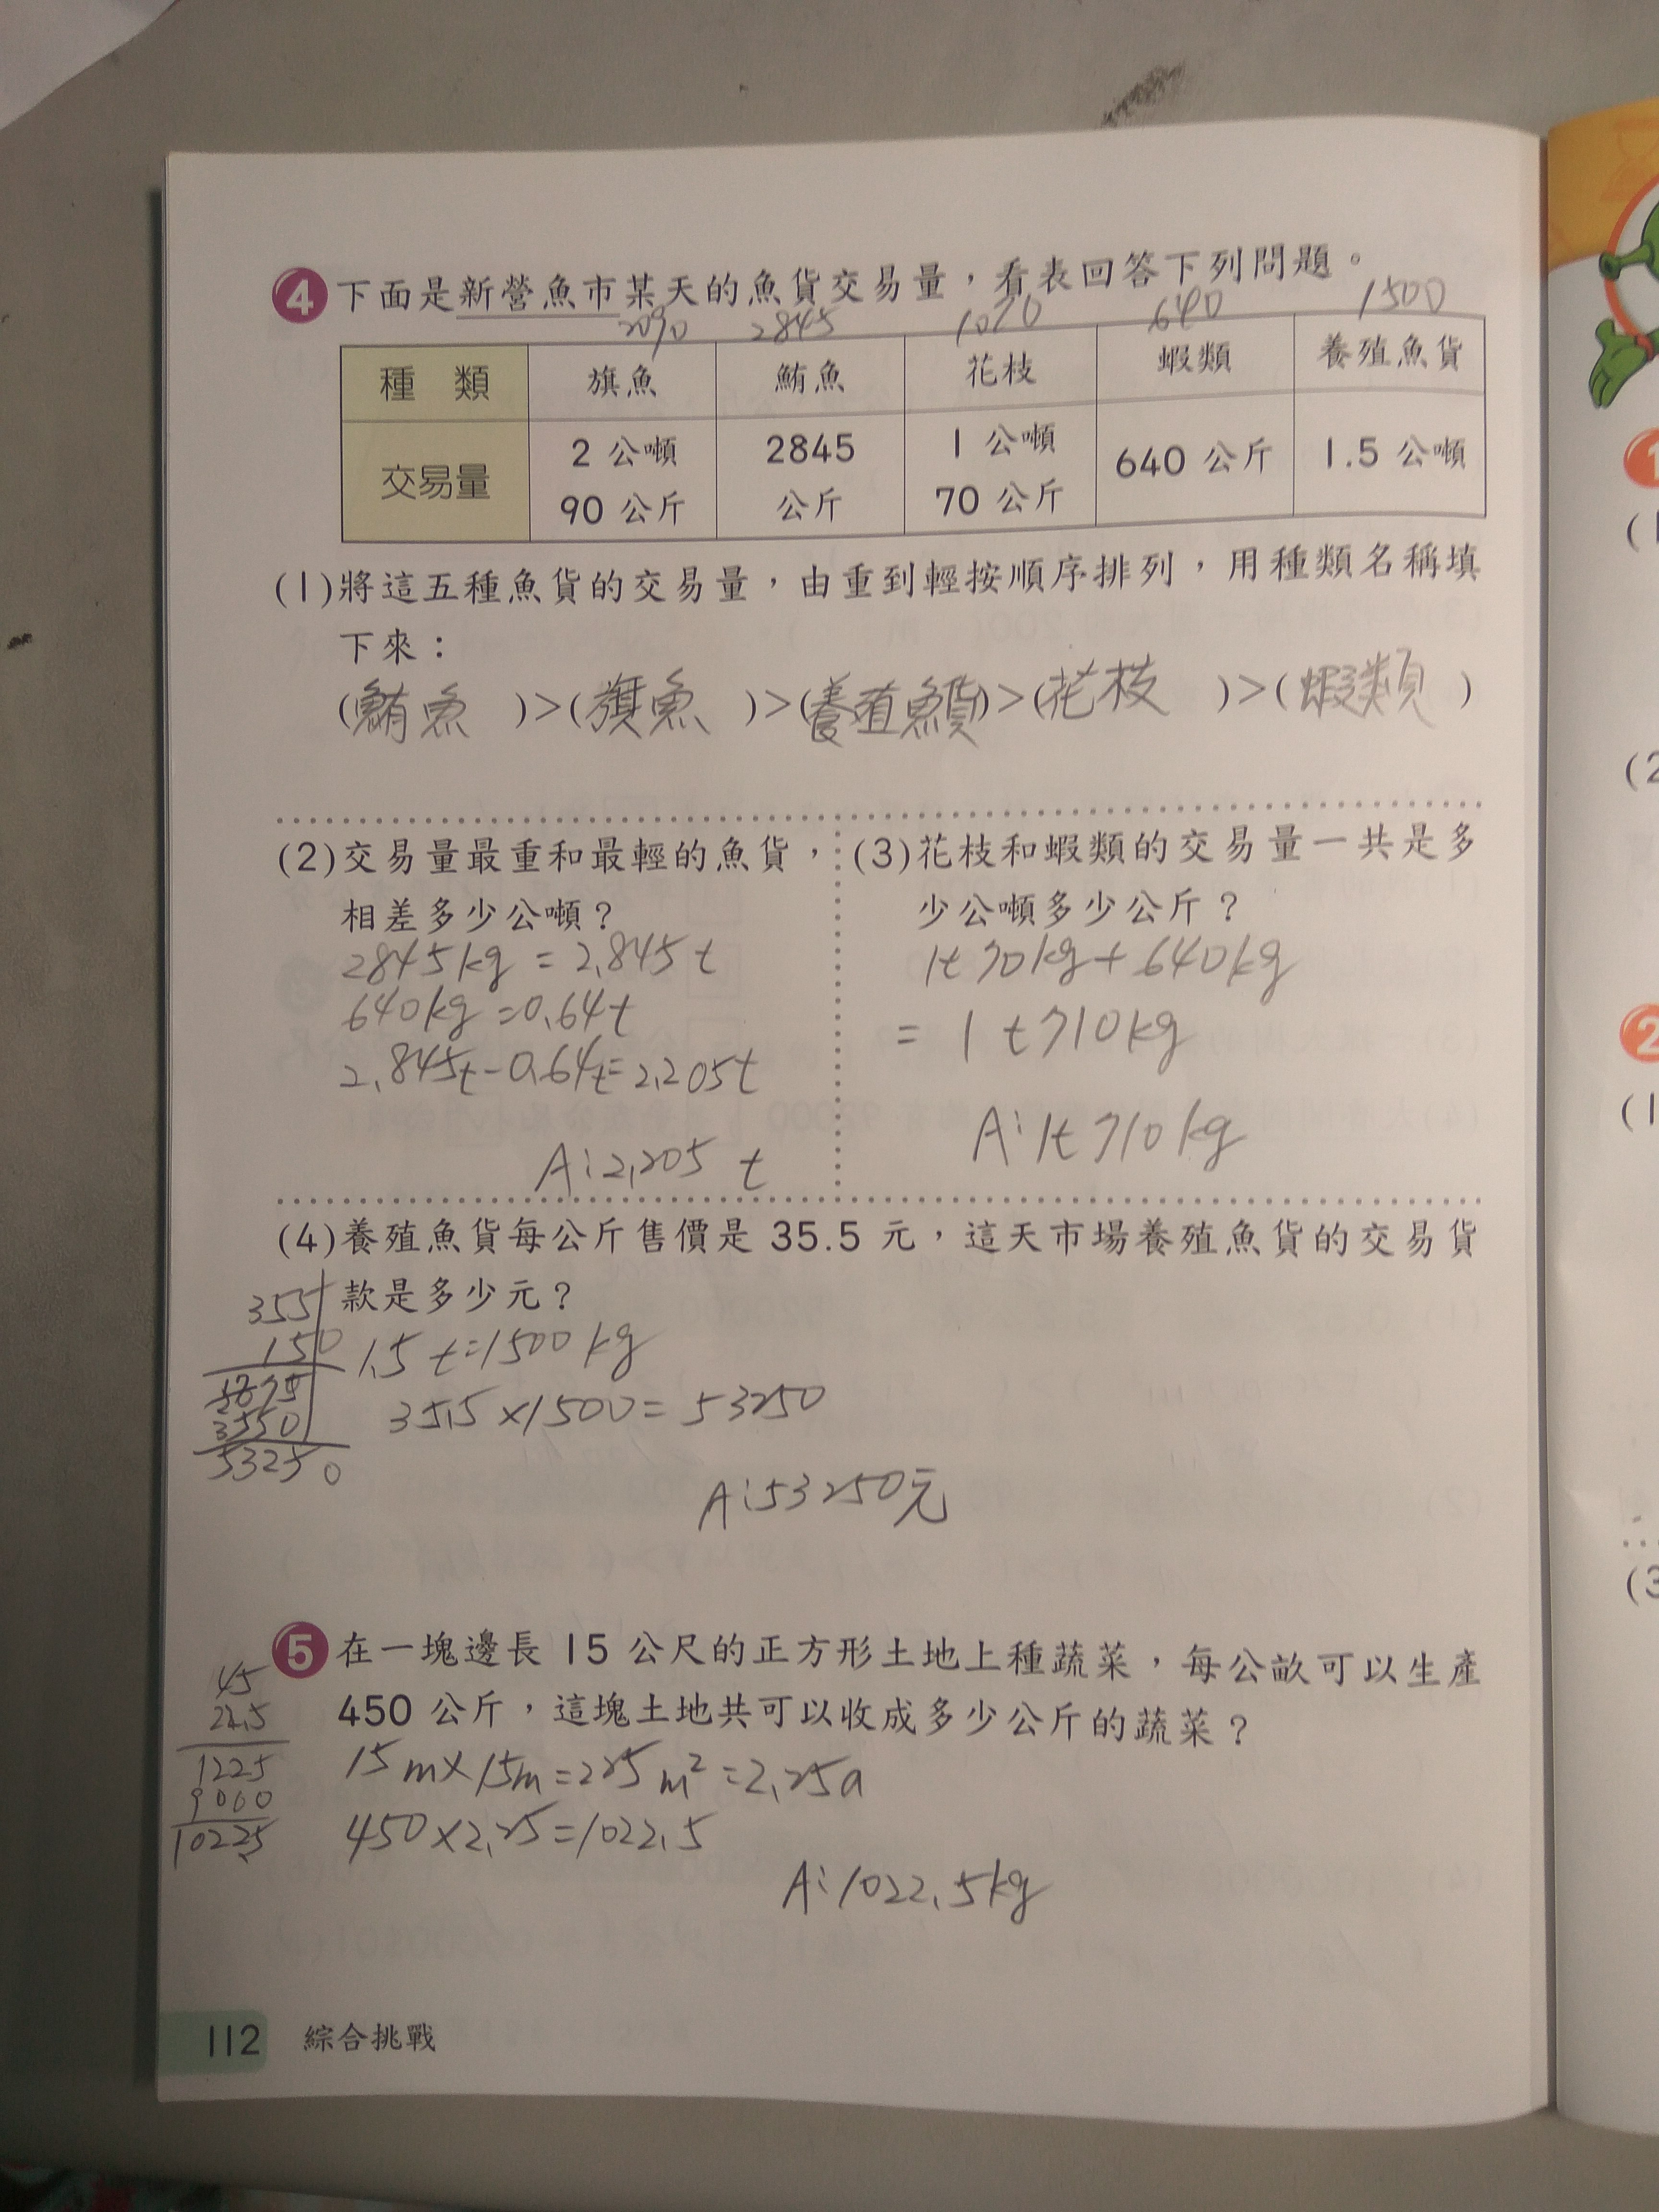 4 下面是新營魚市某天的魚貨交易量，看表回答下列問題。
2090 2845 1070 640 1500
種類 旗魚 鮪魚 花枝 蝦類 養殖魚貨
交易量 2 公噸 90 公斤 2845 公斤 1 公噸 70 公斤 640 公斤 1.5 公噸
(1)將這五種魚貨的交易量，由重到輕按順序排列，用種類名稱填
下來：
(鮪魚)>(旗魚)>(養殖魚貨)>(花枝)>(蝦類)
(2)交易量最重和最輕的魚貨，
相差多少公噸？
2845kg=2.845t
640kg=0.64t
2.845t-0.64t=2.205t
A:2.205 t
(3)花枝和蝦類的交易量一共是多
少公噸多少公斤？
1t70kg+640kg
=1t710kg
A:1t710kg
(4)養殖魚貨每公斤售價是 35.5 元，這天市場養殖魚貨的交易貨
款是多少元？
355
150
1.5t=1500kg
35.5×1500=53250
3550
53250
A:53250元
5 在一塊邊長 15 公尺的正方形土地上種蔬菜，每公畝可以生產
450 公斤，這塊土地共可以收成多少公斤的蔬菜？
45
22.5
1225
9000
10225
15m×15m=225m²=2.25a
450×2.25=1022.5
A:1022.5kg
112 綜合挑戰
(1
(2
2
(1
(3